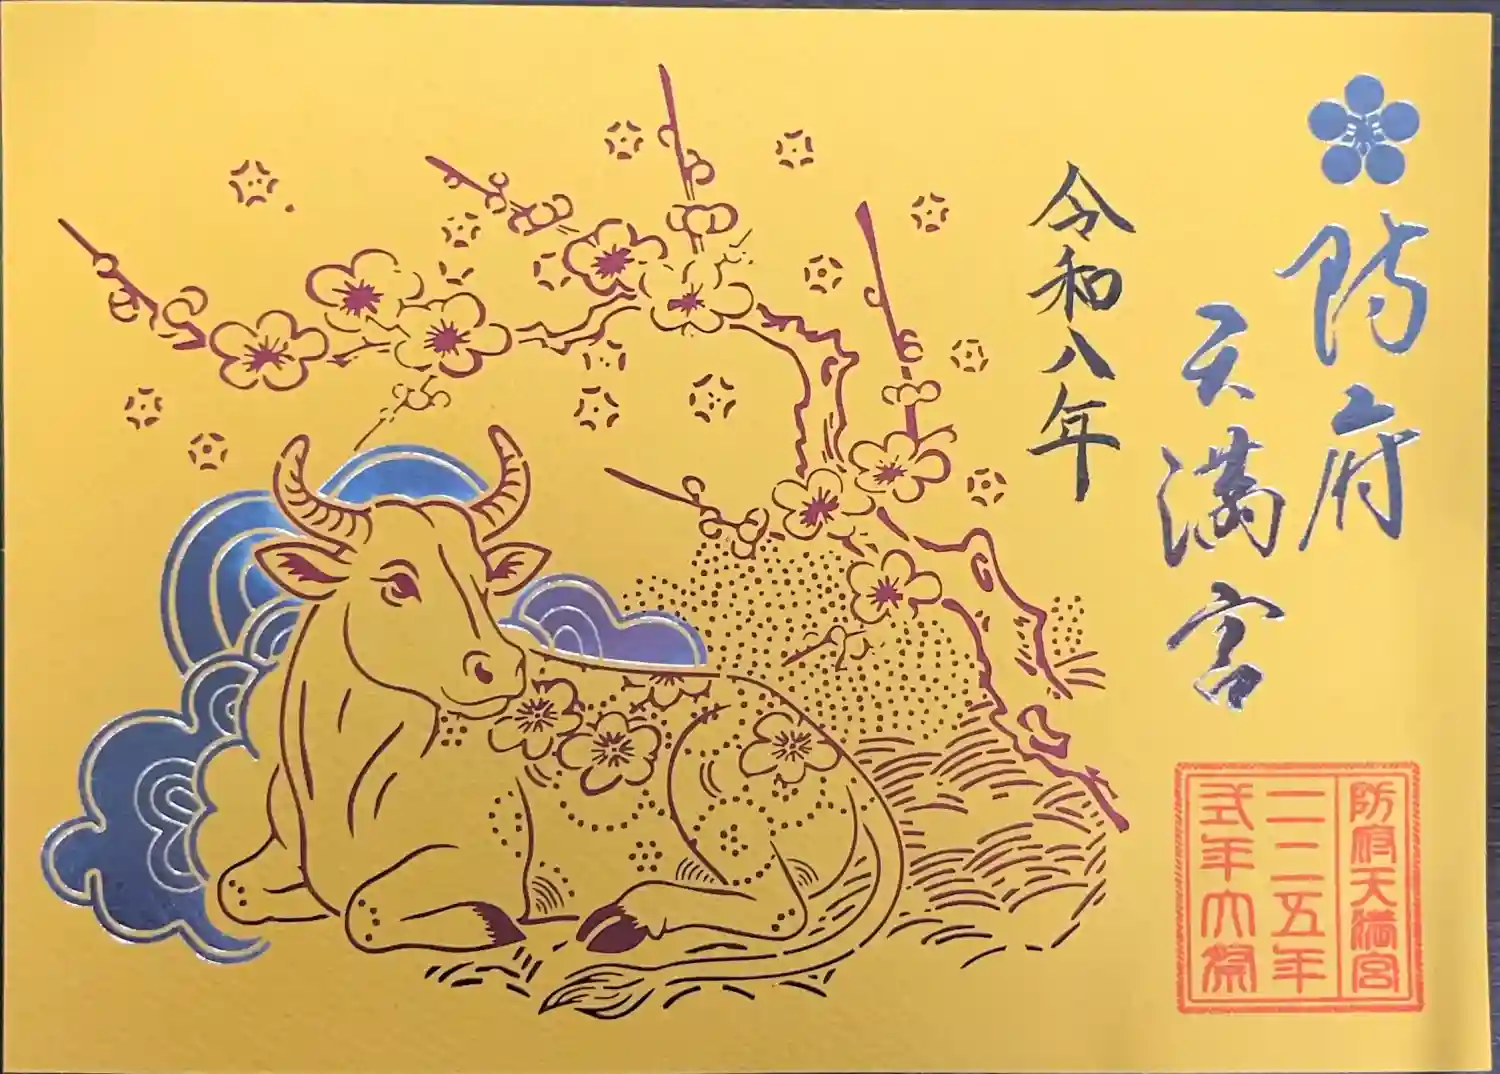 防府
天満宮
令和八年
防府天満宮
一一二五年
式年大祭